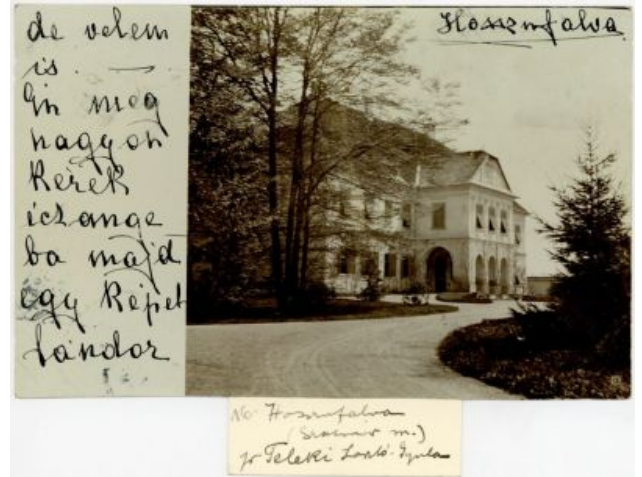 de velem
is. —
Én meg
nagyon
kérek
iczange
ba majd
egy képet
Sándor
Hosszufalva
Hosszufalva
(Szatmár m.)
gr Teleki László Gyula